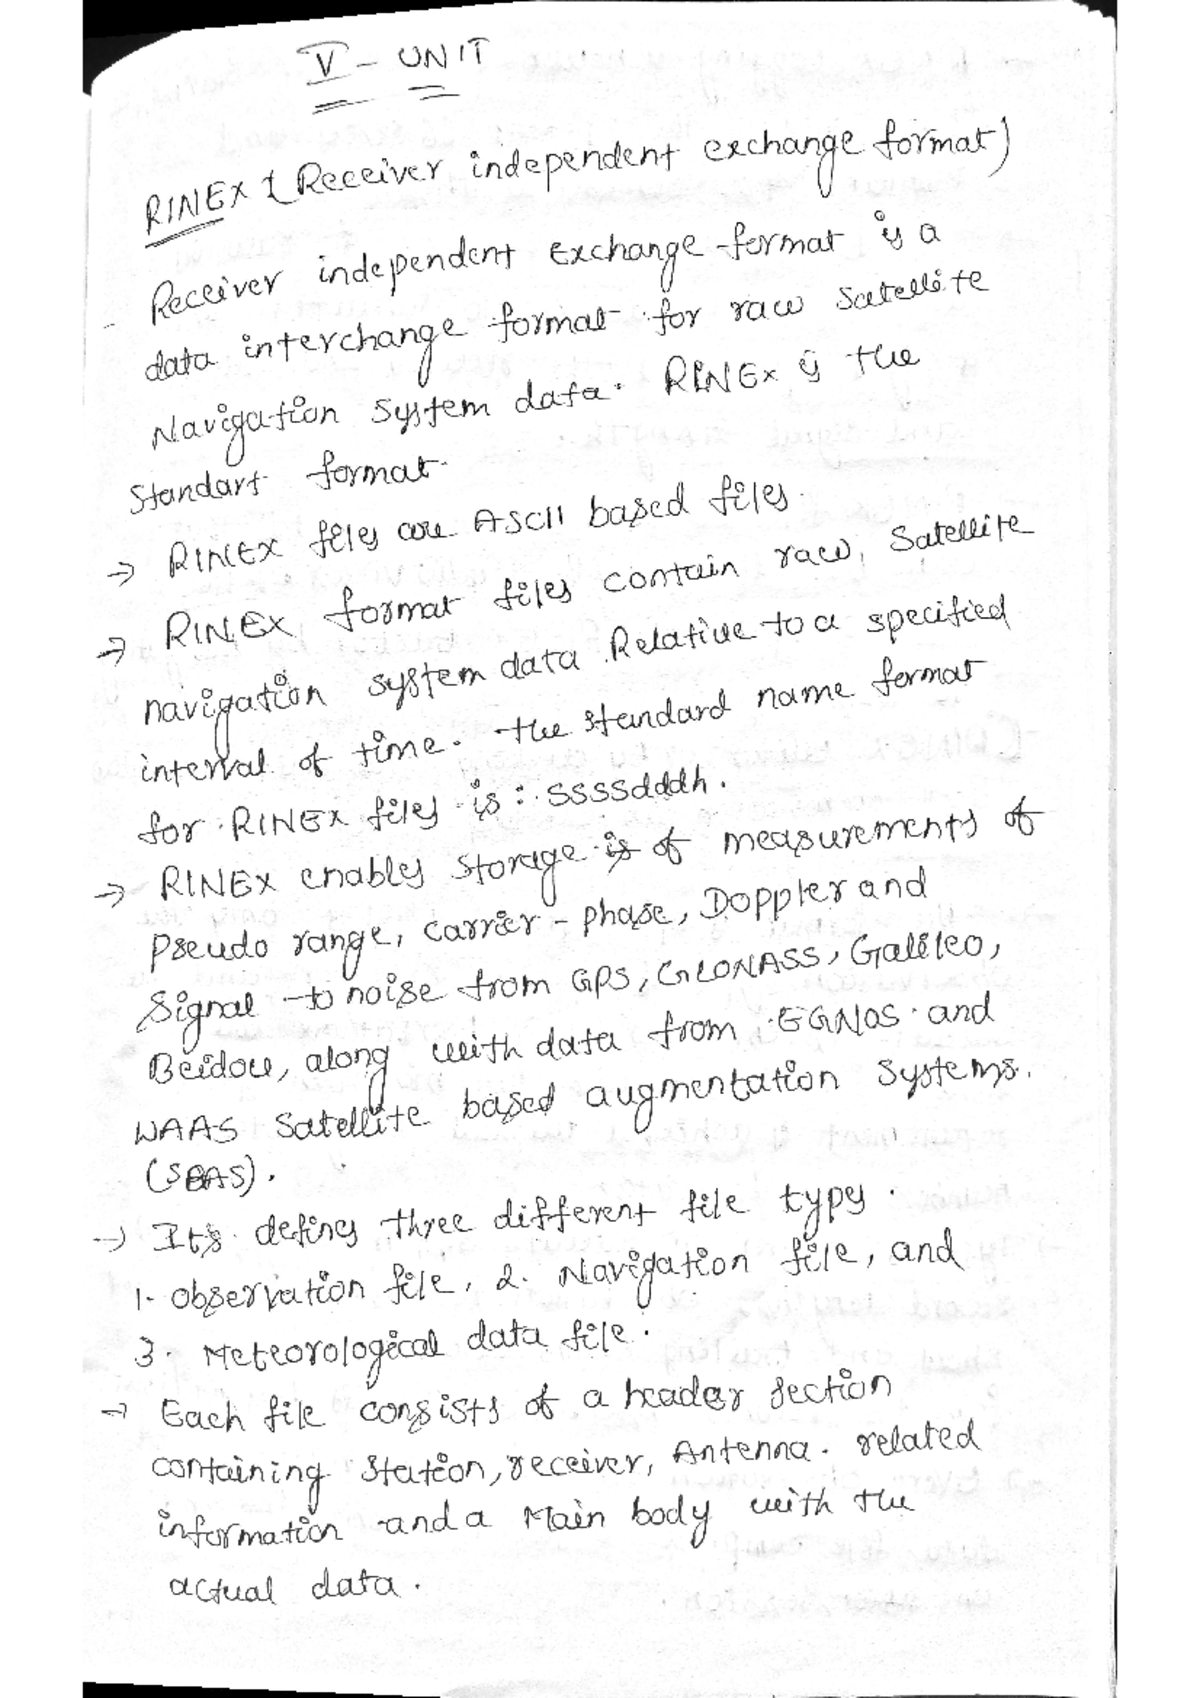 V - UNIT
RINEX {Receiver independent exchange format)
Receiver independent Exchange format is a
data interchange format for raw satellite
Navigation system data. RINEX is the
Standart format.
→ RINEX files are ASCII based files.
→ RINEX format files contain raw, Satellite
navigation system data Relative to a specified
interval of time. the standard name format
for RINEX files is : SSSSdddh.
→ RINEX enables storage is of measurements of
Pseudo range, carrier - phase, Doppler and
Signal - to noise from GPS, GLONASS, Galileo,
Beidou, along with data from EGNOS and
WAAS Satellite based augmentation Systems.
(SBAS).
→ It's defines three different file types.
1. observation file, 2. Navigation file, and
3. Meteorological data file.
→ Each file consists of a header section
containing station, receiver, Antenna. related
information and a Main body with the
actual data.